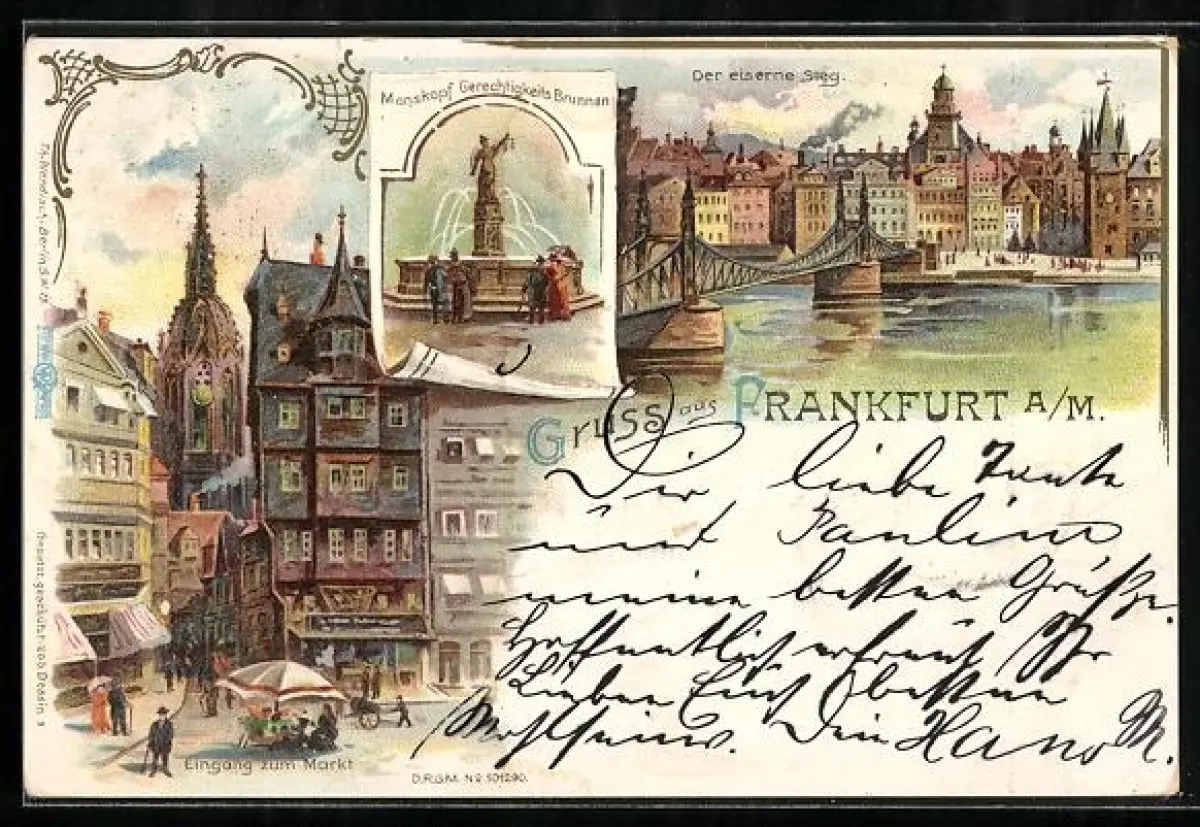 Manskopf Gerechtigkeits Brunnen
Der eiserne Steg.
Gruss aus FRANKFURT A/M.
Dir, liebe Tante
und Pauline
meine besten Grüße.
Hoffentlich erfreut Ihr
Lieben Euch besten
Wohlseins. Dein Hans M.
Eingang zum Markt
D.R.G.M. No 101290.
Gesetzl. geschützt 200 Dessin